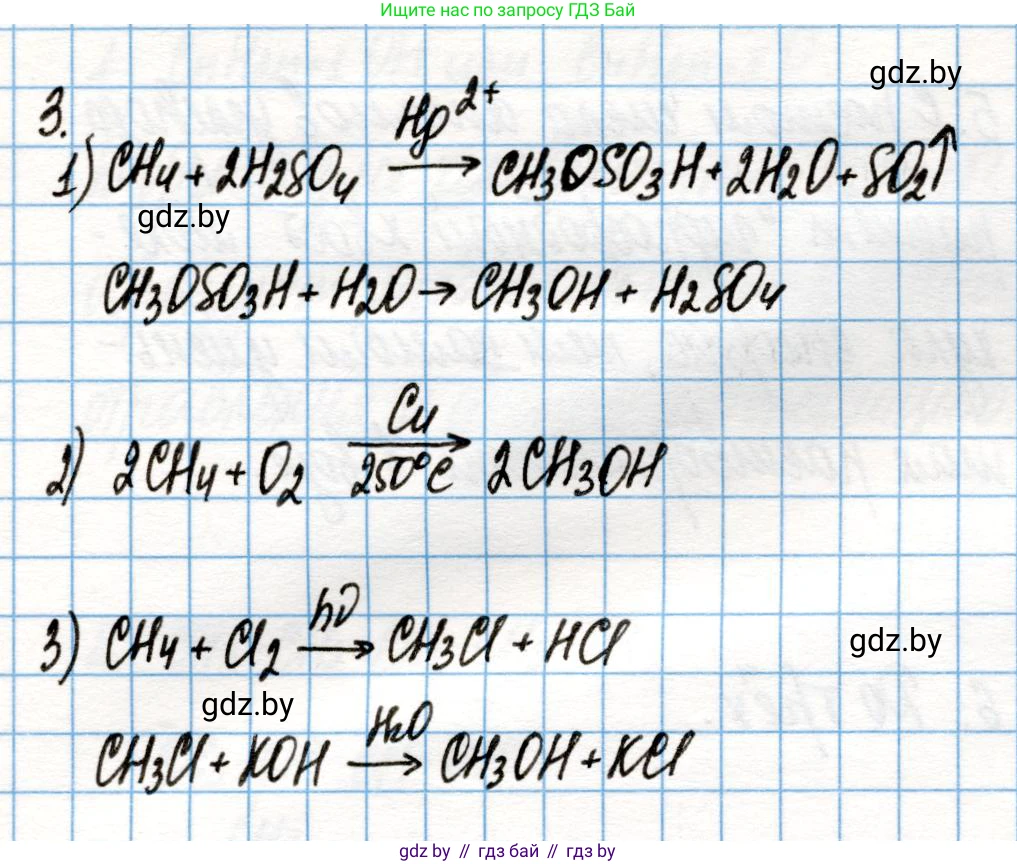 Ищите нас по запросу ГДЗ Бай
gdz.by
3.
1) CH₄ + 2H₂SO₄ →(Hg²⁺) CH₃OSO₃H + 2H₂O + SO₂↑
gdz.by
CH₃OSO₃H + H₂O → CH₃OH + H₂SO₄
2) 2CH₄ + O₂ →(Cu, 250°C) 2CH₃OH
3) CH₄ + Cl₂ →(hν) CH₃Cl + HCl
gdz.by
gdz.by
CH₃Cl + KOH →(H₂O) CH₃OH + KCl
gdz.by // гдз бай // gdz.by